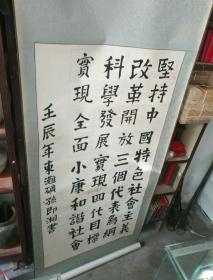 堅持中國特色社會主義
改革開放三個代表為綱
科學發展實現四代目標
實現全面小康和諧社會
壬辰年東灘碩孫即湘書